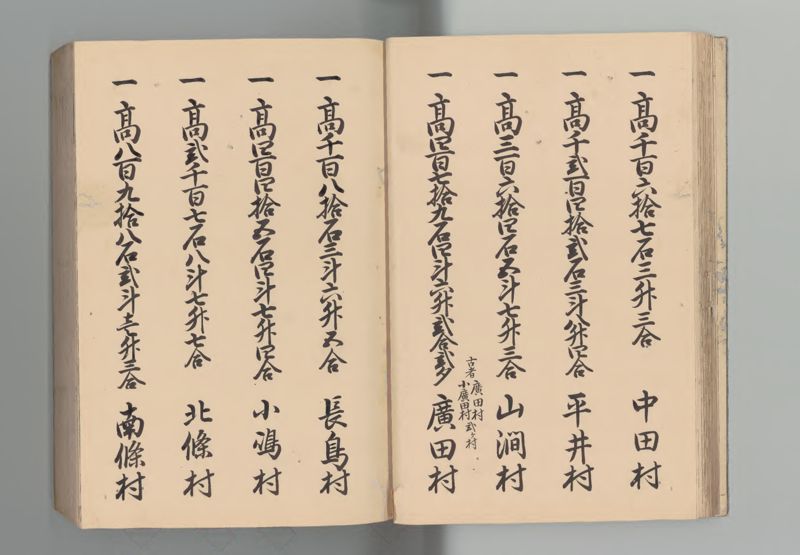 一高千百六拾七石三升三合 中田村
一高千弐百四拾弐石三斗八升四合 平井村
一高三百六拾四石五斗七升三合 山澗村
古者廣田村小廣田村弐ケ村
一高四百七拾九石四斗六升弐合弐夕 廣田村
一高千百八拾石三斗六升五合 長鳥村
一高四百四拾五石四斗七升四合 小鴻村
一高弐千百七石八斗七升七合 北條村
一高八百九拾八石弐斗壱升三合 南條村